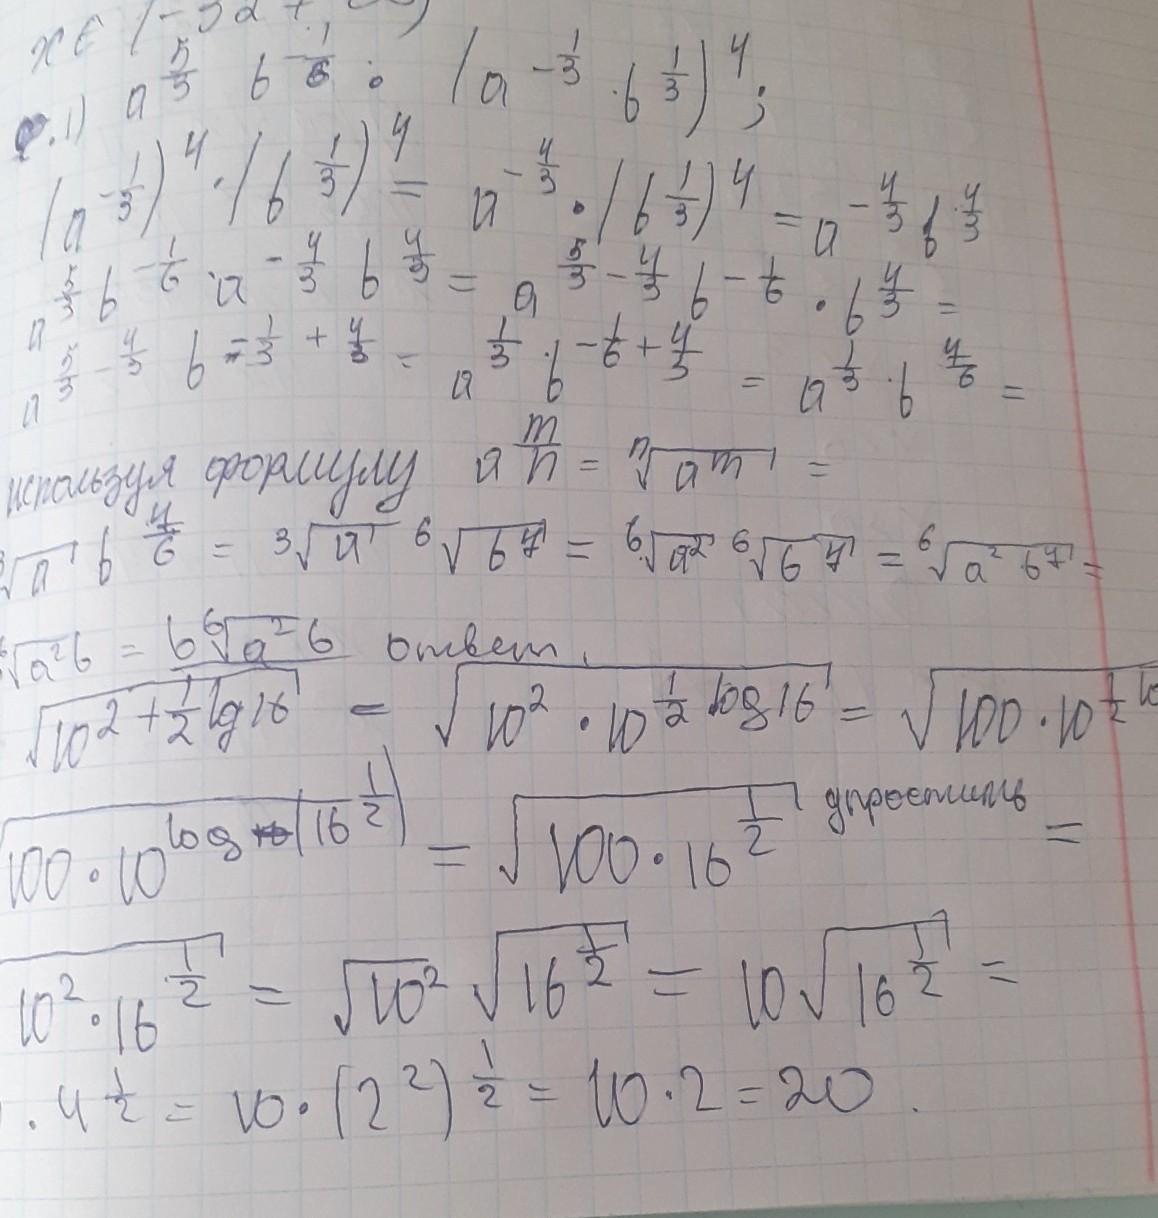 x ∈ (-327,
.1) a^{5/3} b^{-1/6} : (a^{-1/3} · b^{1/3})^4;
(a^{-1/3})^4 · (b^{1/3})^4 = a^{-4/3} · (b^{1/3})^4 = a^{-4/3} b^{4/3}
a^{5/3} b^{-1/6} · a^{-4/3} b^{4/3} = a^{5/3 - 4/3} b^{-1/6} · b^{4/3} =
a^{5/3 - 4/3} b^{-1/3 + 4/3} = a^{1/3} · b^{-1/6 + 4/3} = a^{1/3} · b^{7/6} =
используя формулу a^{m/n} = ⁿ√(a^m) =
³√a b^{7/6} = ³√a ⁶√(b^7) = ⁶√(a^2) ⁶√(b^7) = ⁶√(a^2 · b^7) =
√(a^2 b) = b ⁶√(a^2 b) ответ.
√(10^{2 + 1/2 lg 16}) = √(10^2 · 10^{1/2 log 16}) = √(100 · 10^{1/2 lo
√(100 · 10^{log (16^{1/2})}) = √(100 · 16^{1/2}) упростить =
√(10^2 · 16^{1/2}) = √10^2 √(16^{1/2}) = 10√(16^{1/2}) =
· 4^{1/2} = 10 · (2^2)^{1/2} = 10 · 2 = 20.